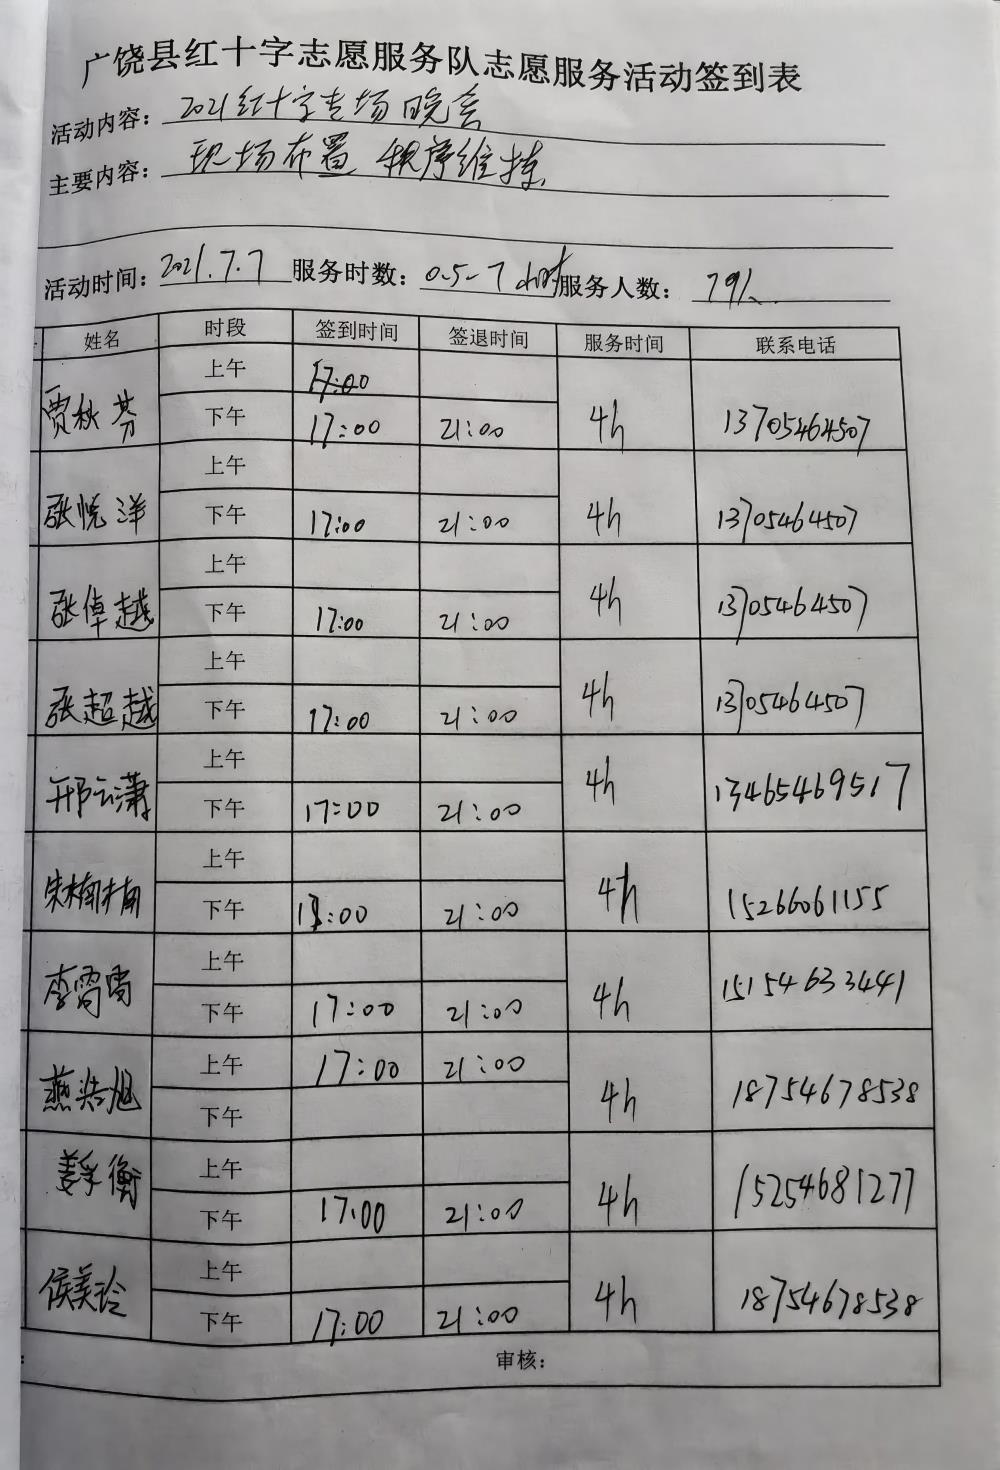 广饶县红十字志愿服务队志愿服务活动签到表
活动内容：2021红十字专场晚会
主要内容：现场布置 秩序维护
活动时间：2021.7.7 服务时数：0.5-7小时 服务人数：79人
姓名 时段 签到时间 签退时间 服务时间 联系电话
贾秋芬 上午 17:00
下午 17:00 21:00 4h 13705464507
张悦洋 上午
下午 17:00 21:00 4h 13705464507
张倬越 上午
下午 17:00 21:00 4h 13705464507
张超越 上午
下午 17:00 21:00 4h 13705464507
邢云潇 上午
下午 17:00 21:00 4h 13465469517
朱楠楠 上午
下午 17:00 21:00 4h 15266061155
李霄雷 上午
下午 17:00 21:00 4h 15154633441
燕浩旭 上午 17:00 21:00 4h 18754678538
下午
姜子衡 上午
下午 17:00 21:00 4h 15254681277
侯美玲 上午
下午 17:00 21:00 4h 18754678538
审核：